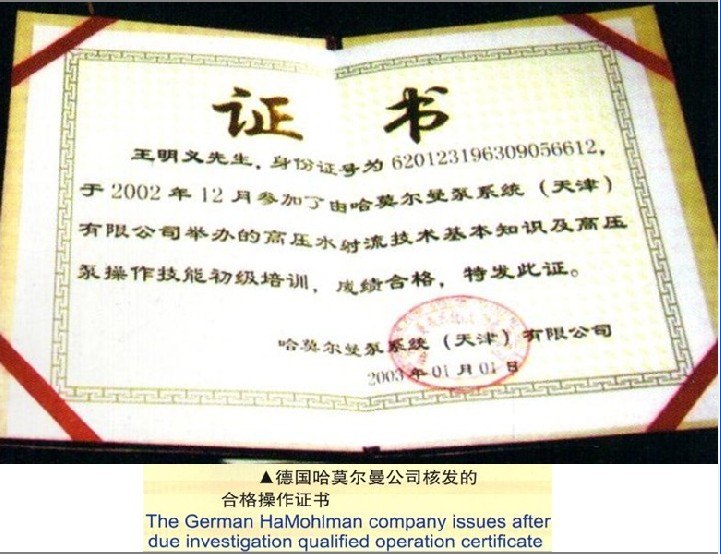 证书
王明义先生，身份证号为620123196309056612，
于2002年12月参加了由哈莫尔曼泵系统（天津）
有限公司举办的高压水射流技术基本知识及高压
泵操作技能初级培训，成绩合格，特发此证。
哈莫尔曼泵系统（天津）有限公司
2003年01月01日
▲德国哈莫尔曼公司核发的
合格操作证书
The German HaMohlman company issues after
due investigation qualified operation certificate